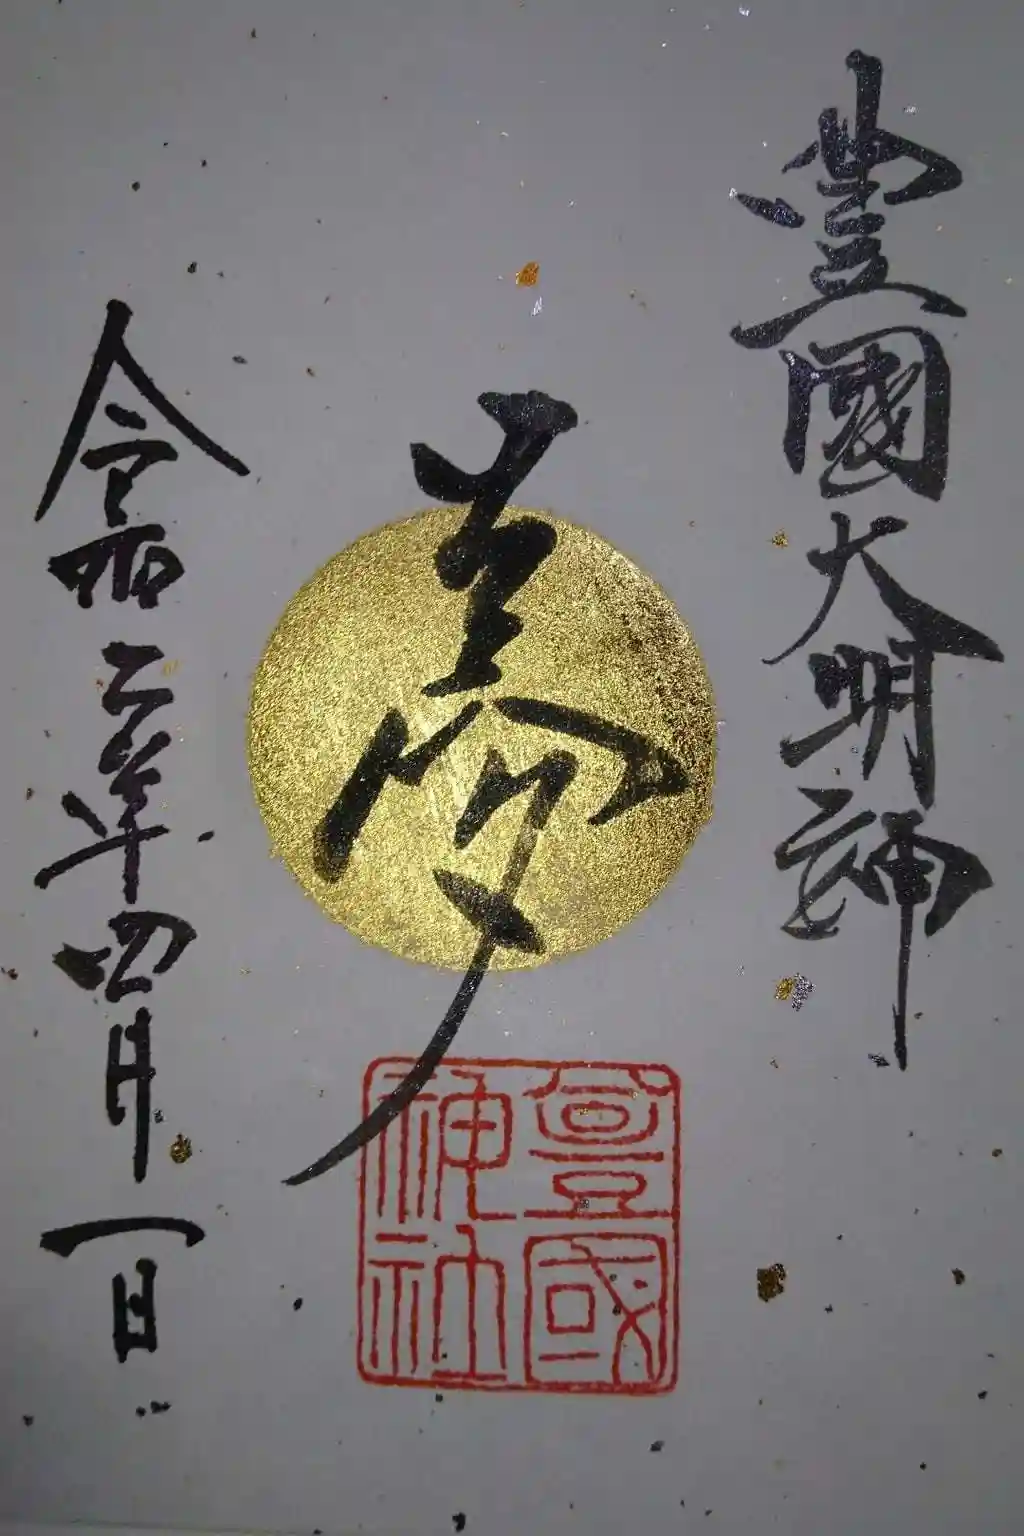 豊國大明神
夢
令和五年四月一日
豊國神社